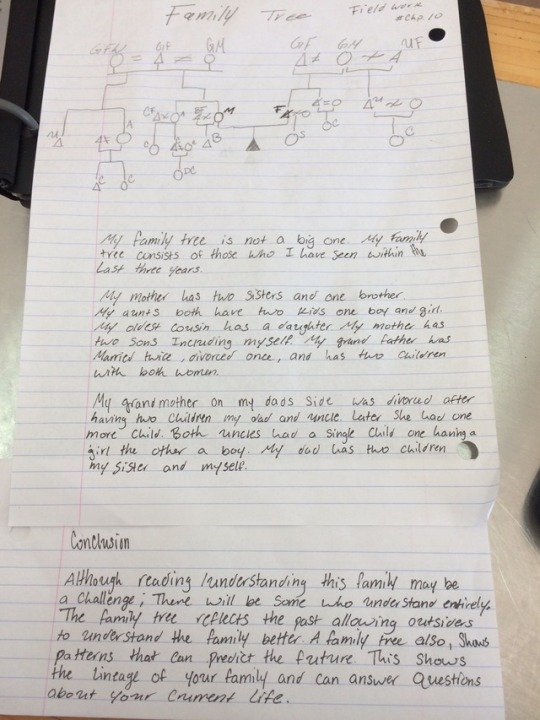 Family Tree
Field work
#Chp.10
GFW GF GM GF GM UF
U A F A GF A BF M F U
C C C B S C C
DC
My family tree is not a big one. My Family
tree consists of those who I have seen within the
Last three years.
My mother has two sisters and one brother.
My aunts both have two kids one boy and girl.
My oldest cousin has a daughter My mother has
two sons Including myself. My grand father was
Married twice, divorced once, and has two children
with both women.
My grandmother on my dads side was divorced after
having two children my dad and uncle. Later she had one
more child. Both uncles had a single child one having a
girl the other a boy. My dad has two children
my sister and myself.
Conclusion
Although reading /understanding this family may be
a challenge; There will be some who understand entirely.
The family tree reflects the past allowing outsiders
to understand the family better. A family tree also, shows
patterns that can predict the future. This shows
the lineage of your family and can answer questions
about your current life.